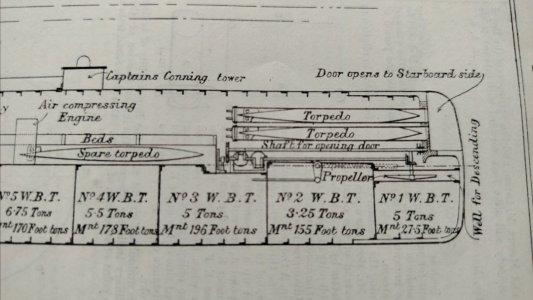 Captains Conning tower
Door opens to Starboard side
Air compressing
Engine
Torpedo
Torpedo
Beds
Shaft for opening door
Spare torpedo
Propeller
Well for Descending
Nº5 W.B.T.
6·75 Tons
Mnt 170 Foot tons
Nº4 W.B.T.
5·5 Tons
Mnt 178 Foot tons
Nº3 W.B.T.
5 Tons
Mnt 196 Foot tons
Nº2 W.B.T.
3·25 Tons
Mnt 155 Foot tons
Nº1 W.B.T.
5 Tons
Mnt 27·5 Foot tons